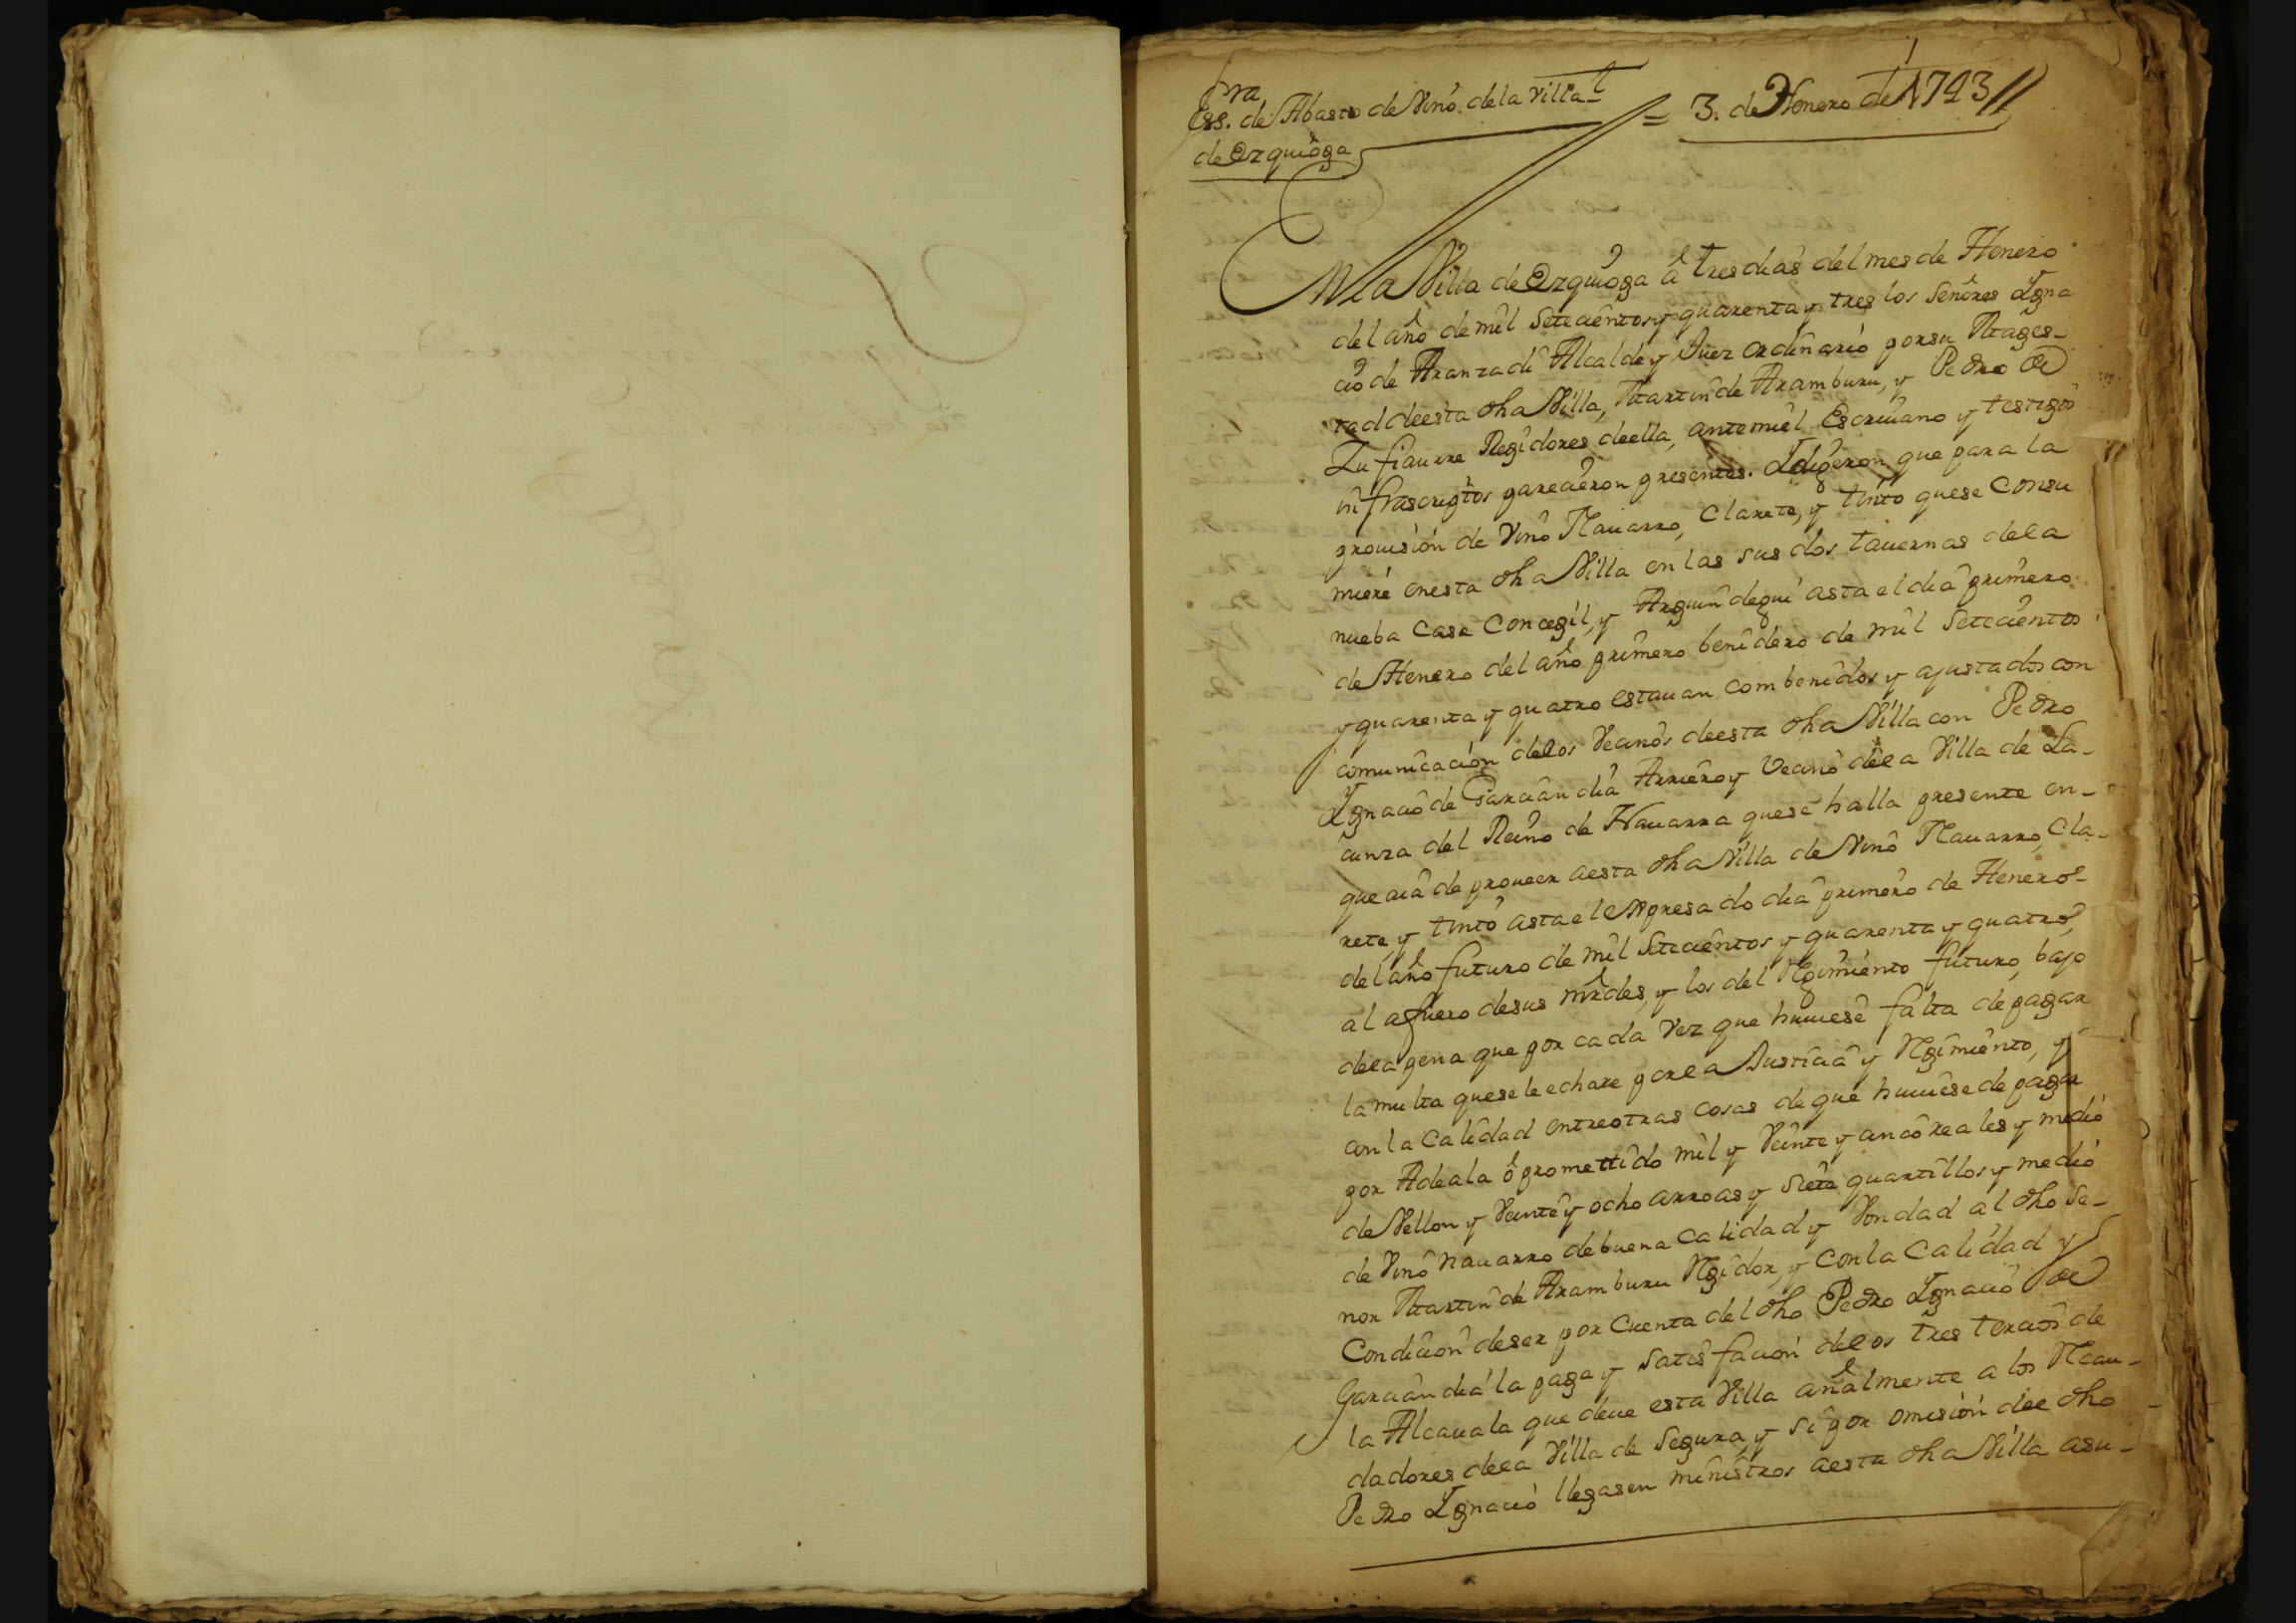 1
Ess.ra de Abasto de Vino de la Villa
de Ezquioga
= 3. de Henero de 1743 //
En la Villa de Ezquioga â tres dias del mes de Henero
del año de mil Setecientos y quarenta y tres los Señores Ygna
cio de Aranzadi Alcalde y Juez ordinario por su Mages-
tad de esta dha Villa, Martin de Aramburu, y Pedro de
Zufiaurre Regidores de ella, ante mi el Escriuano y testigos
infrascriptos parecieron presentes. Ydigeron que para la
prouisión de Vino Nauarro, Clarete, y tinto que se Consu
miere en esta dha Villa en las sus dos tauernas de la
nueba Casa Concegil, y Arguindegui asta el dia primero
de Henero del año primero benidero de mil Setecientos
y quarenta y quatro estauan combenidos y ajustados con
comunicación de los Vecinos de esta dha Villa con Pedro
Ygnacio de Garciandia Arriero y Vecino de la Villa de La-
cunza del Reino de Nauarra que se halla presente en-
que aia de proueer a esta dha Villa de Vino Nauarro, Cla-
rete, y tinto asta el expresado dia primero de Henero-
del año futuro de mil Setecientos y quarenta y quatro,
al afuero de sus mrdes, y los del Rgimiento futuro, bajo
de la pena que por cada Vez que huuiese falta de pagar
la multa que se le echare por la Justicia y Rgimiento, y
con la Calidad entre otras cosas de que huuiese de pagar
por Adeala ô promettido mil y Veinte y cinco reales y medio
de Vellon y Veinte y ocho arroas y siete quartillos y medio
de Vino nauarro de buena Calidad y Vondad al dho Se-
nor Martin de Aramburu Rgidor, y Con la Calidad y
Condicion de ser por Cuenta del dho Pedro Ygnacio de
Garciandia la paga y satisfacion de los tres tercios de
la Alcauala que deue esta Villa añalmente a los Rcau-
dadores de la Villa de Segura, y si por omisión de el dho
Pedro Ygnacio llegasen ministros a esta dha Villa asu-